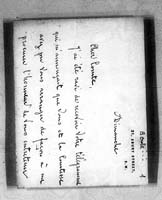 STREET,
Dimanche
Cher Comte,
J'ai été ravi de recevoir votre télégramme
qui m'annonçait que vous et la Comtesse
pu vous arranger de façon à me
procurer l'honneur de vous